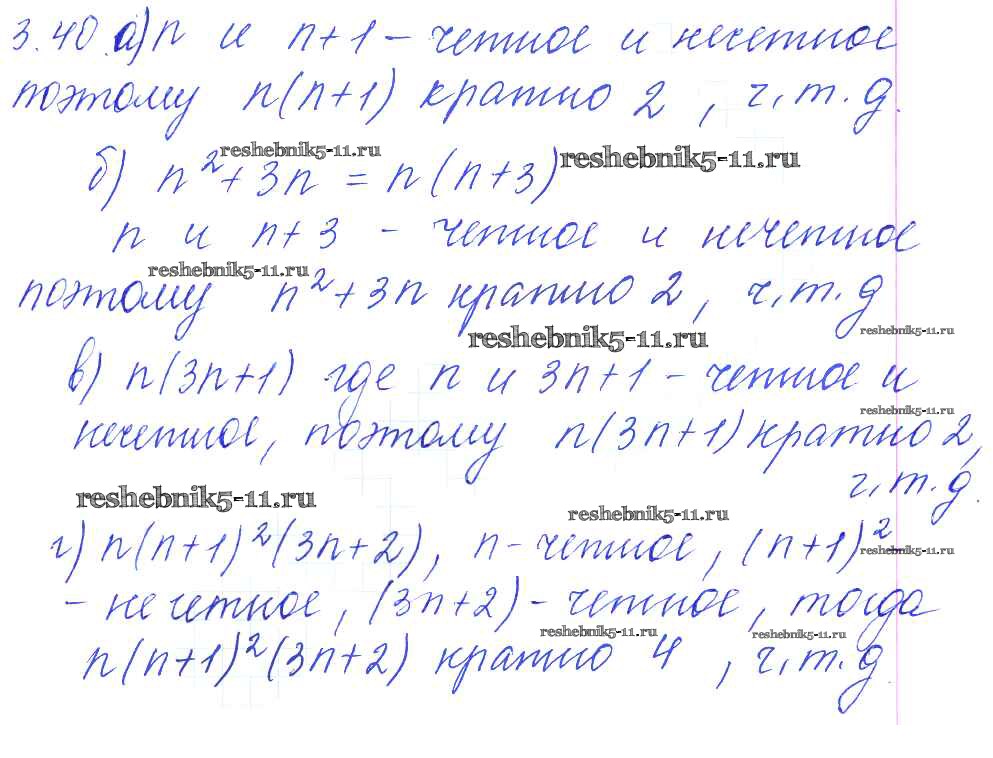 3.40 а) n и n+1 – четное и нечетное
поэтому n(n+1) кратно 2, ч.т.д.
reshebnik5-11.ru
б) n²+3n = n(n+3)
reshebnik5-11.ru
n и n+3 – четное и нечетное
reshebnik5-11.ru
поэтому n²+3n кратно 2, ч.т.д
reshebnik5-11.ru
reshebnik5-11.ru
в) n(3n+1) где n и 3n+1 – четное и
reshebnik5-11.ru
нечетное, поэтому n(3n+1) кратно 2,
ч.т.д.
reshebnik5-11.ru
reshebnik5-11.ru
г) n(n+1)²(3n+2), n – четное, (n+1)² –
reshebnik5-11.ru
– нечетное, (3n+2) – четное, тогда
reshebnik5-11.ru
reshebnik5-11.ru
n(n+1)²(3n+2) кратно 4, ч.т.д.